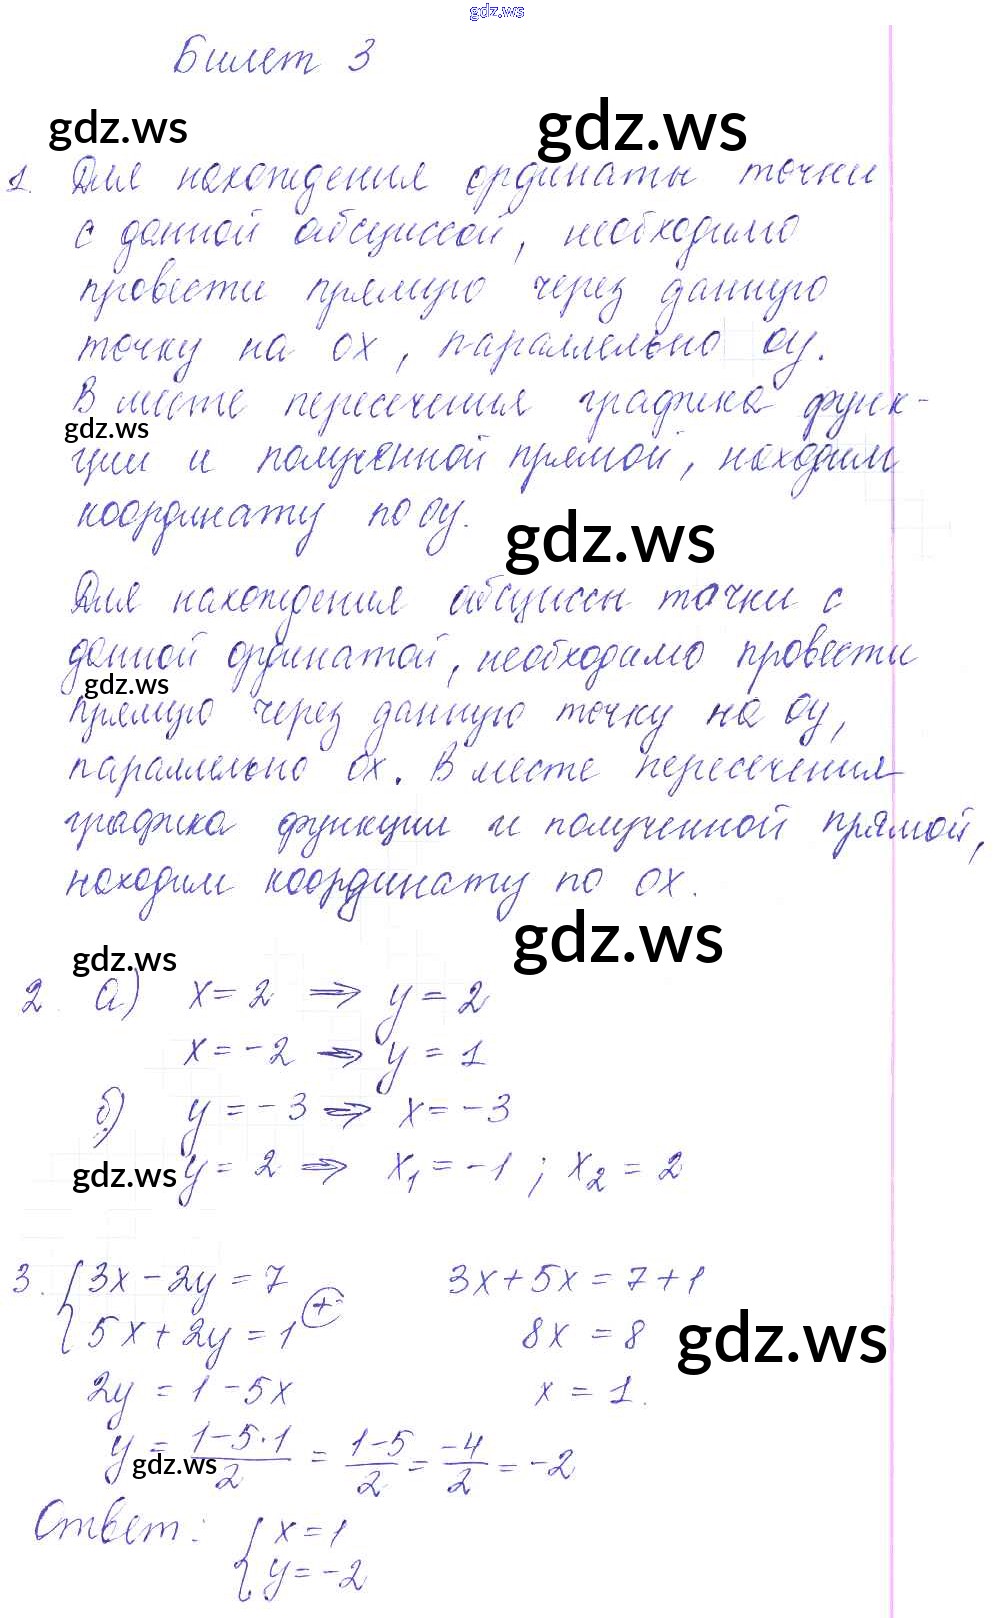 gdz.ws
Билет 3
gdz.ws gdz.ws
1. Для нахождения ординаты точки
с данной абсциссой, необходимо
провести прямую через данную
точку на ох, параллельно оу.
В месте пересечения графика функ-
gdz.ws
ции и полученной прямой, находим
координату по оу.
gdz.ws
Для нахождения абсциссы точки с
данной ординатой, необходимо провести
gdz.ws
прямую через данную точку на оу,
параллельно ох. В месте пересечения
графика функции и полученной прямой,
находим координату по ох.
gdz.ws gdz.ws
2. а) x = 2 ⇒ y = 2
x = -2 ⇒ y = 1
б) y = -3 ⇒ x = -3
gdz.ws
y = 2 ⇒ x₁ = -1 ; x₂ = 2
3. { 3x - 2y = 7 3x + 5x = 7 + 1
5x + 2y = 1 (+) 8x = 8
gdz.ws
2y = 1 - 5x x = 1.
y = (1-5·1)/2 = (1-5)/2 = -4/2 = -2
gdz.ws
Ответ: { x = 1
y = -2